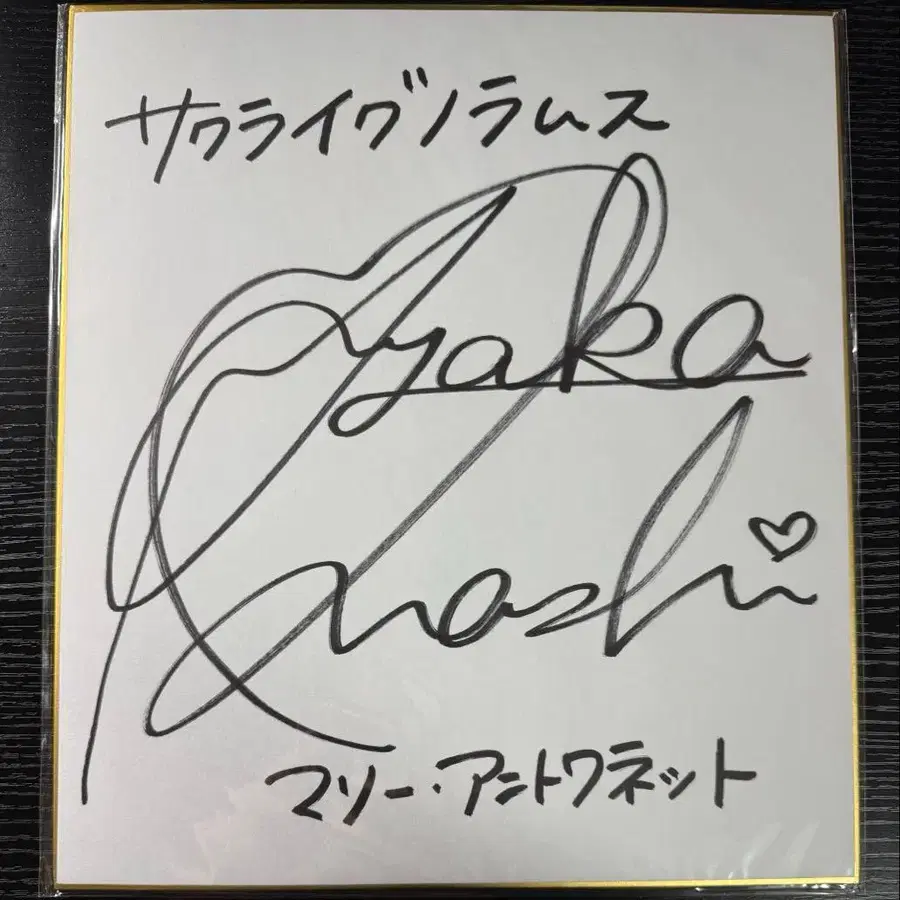 サクライグノラムス
Ayaka
Ohashi
マリー・アントワネット